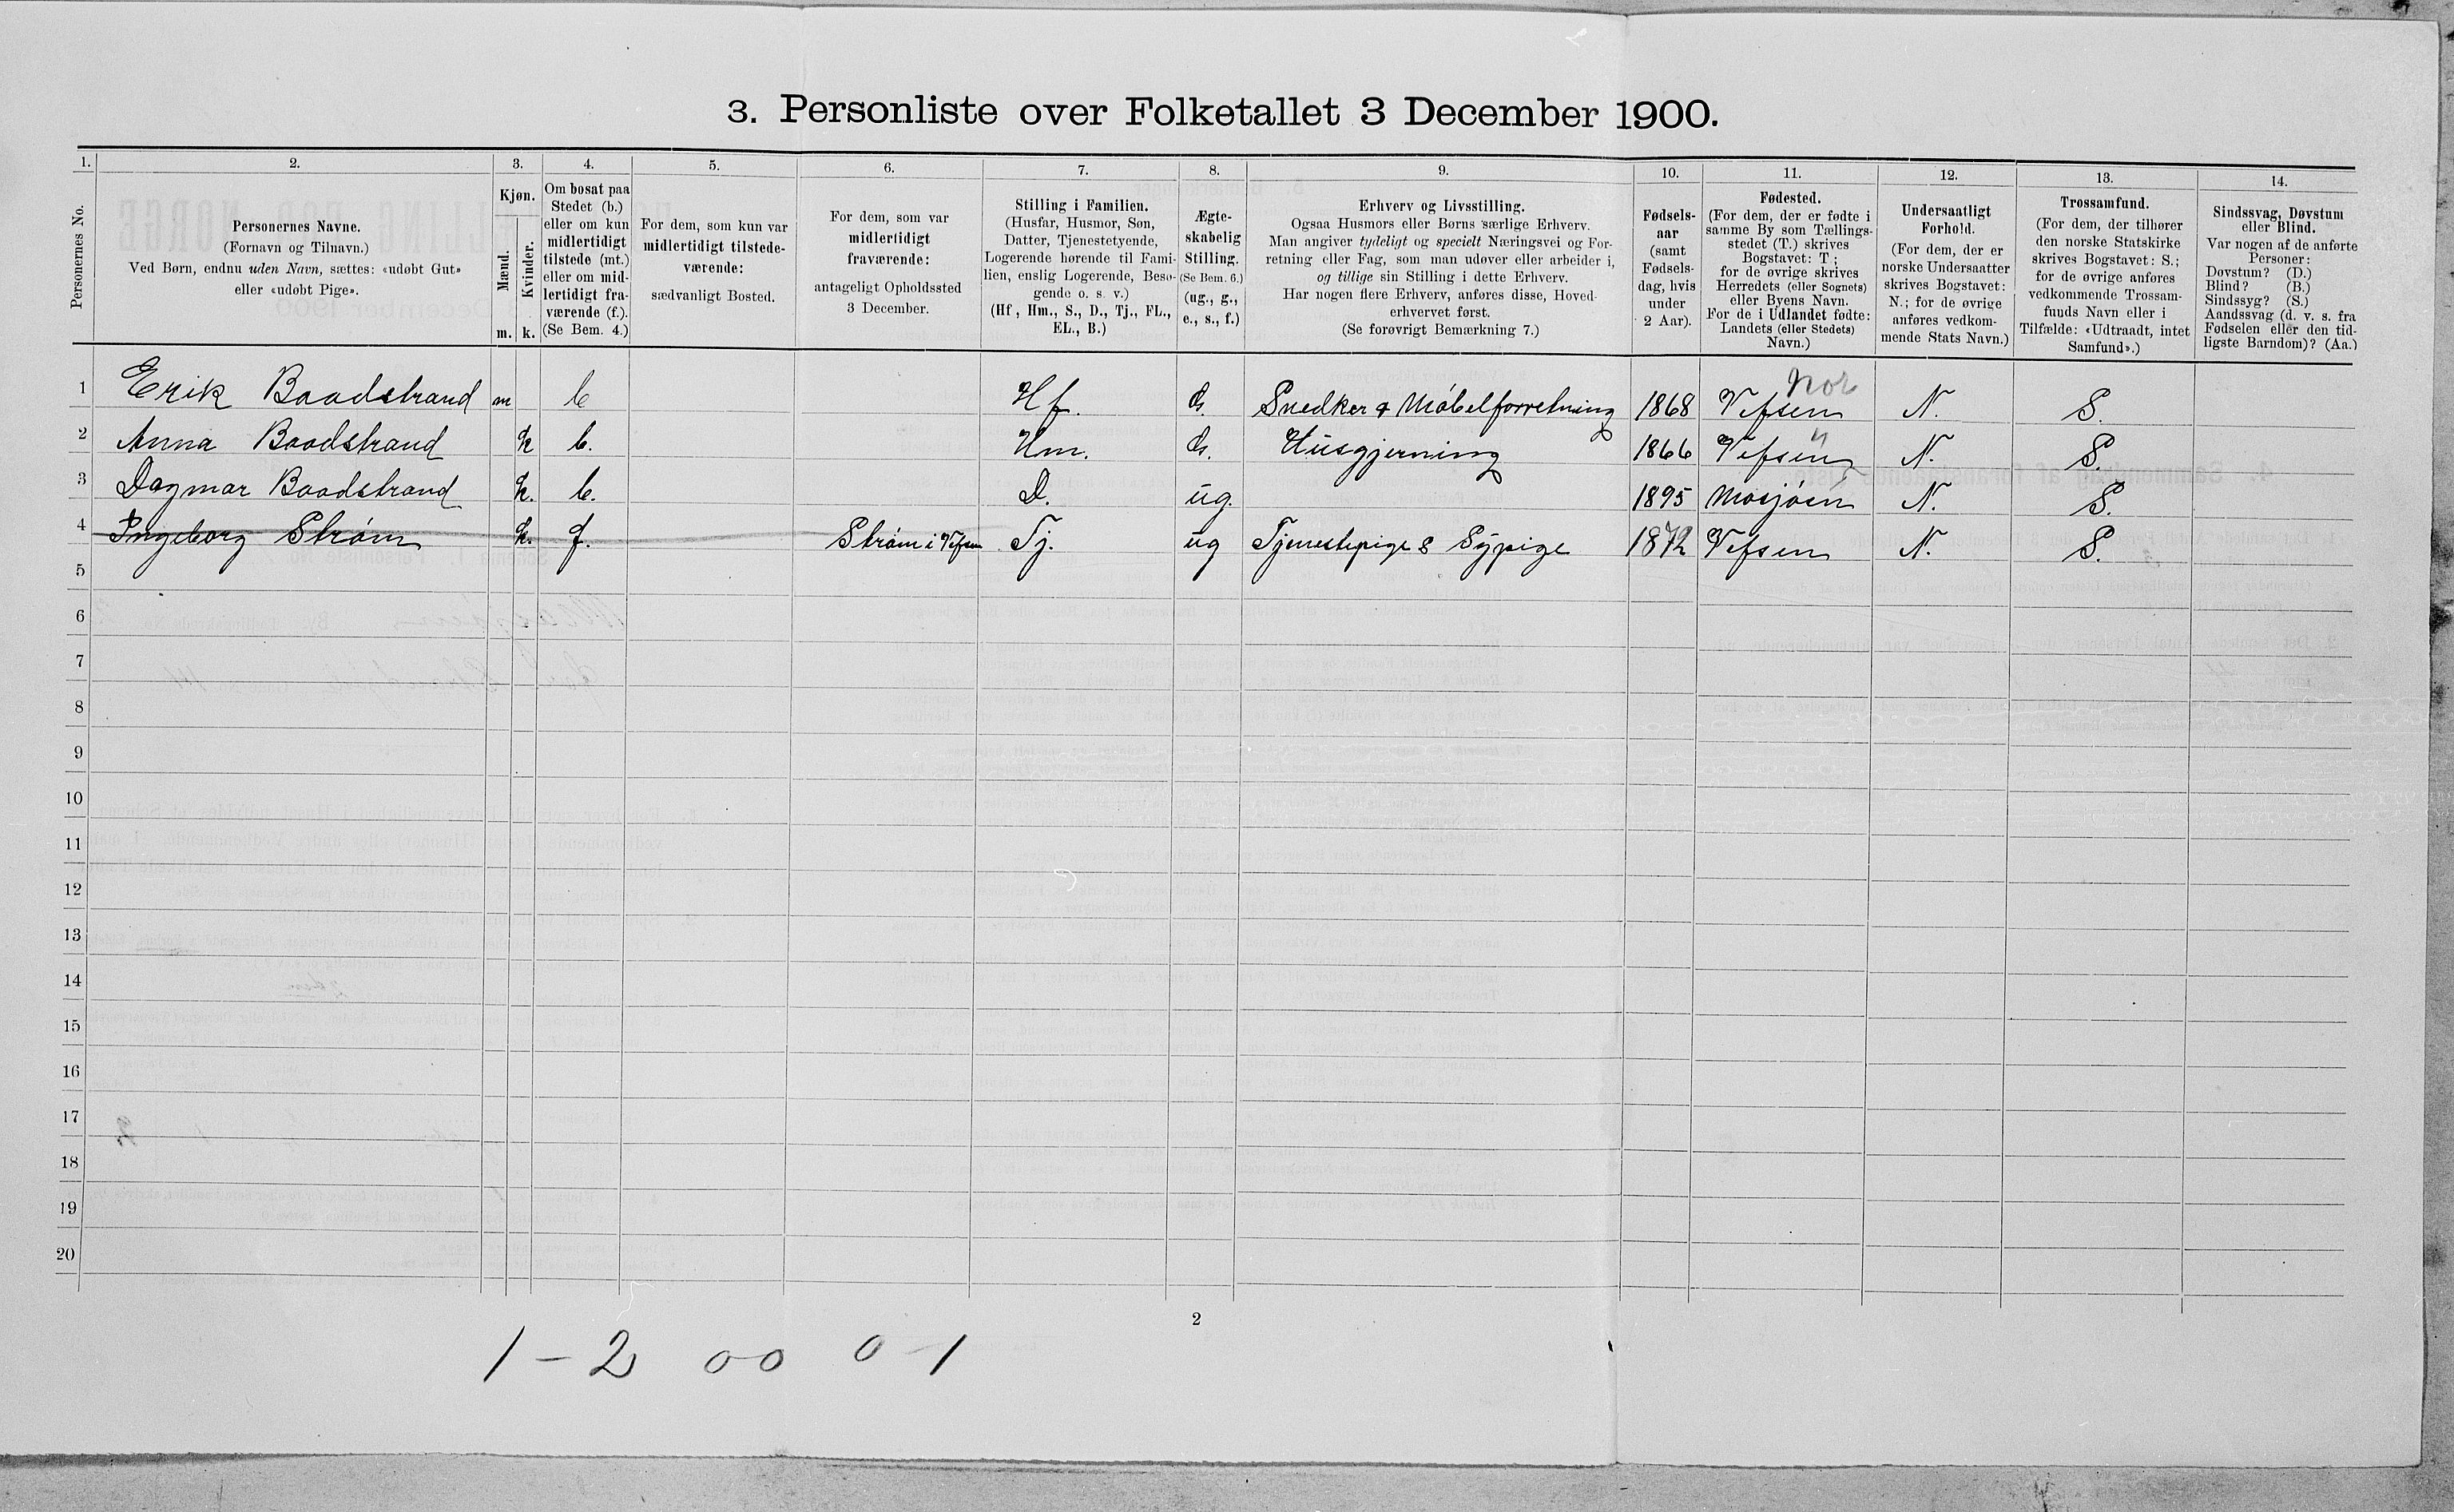 3. Personliste over Folketallet 3 December 1900.
1. 2. 3. 4. 5. 6. 7. 8. 9. 10. 11. 12. 13. 14.
Personernes No.
Personernes Navne.
(Fornavn og Tilnavn.)
Ved Børn, endnu uden Navn, sættes: «udøbt Gut»
eller «udøbt Pige».
Kjøn.
Mænd.
Kvinder.
m. k.
Om bosat paa
Stedet (b.)
eller om kun
midlertidigt
tilstede (mt.)
eller om mid-
lertidigt fra-
værende (f.).
(Se Bem. 4.)
For dem, som kun var
midlertidigt tilstede-
værende:
sædvanligt Bosted.
For dem, som var
midlertidigt
fraværende:
antageligt Opholdssted
3 December.
Stilling i Familien.
(Husfar, Husmor, Søn,
Datter, Tjenestetyende,
Logerende hørende til Fami-
lien, enslig Logerende, Besø-
gende o. s. v.)
(Hf, Hm., S., D., Tj., FL.,
EL., B.)
Ægte-
skabelig
Stilling.
(Se Bem. 6.)
(ug., g.,
e., s., f.)
Erhverv og Livsstilling.
Ogsaa Husmors eller Børns særlige Erhverv.
Man angiver tydeligt og specielt Næringsvei og For-
retning eller Fag, som man udøver eller arbeider i,
og tillige sin Stilling i dette Erhverv.
Har nogen flere Erhverv, anføres disse, Hoved-
erhvervet først.
(Se forøvrigt Bemærkning 7.)
Fødsels-
aar
(samt
Fødsels-
dag, hvis
under
2 Aar).
Fødested.
(For dem, der er fødte i
samme By som Tællings-
stedet (T.) skrives
Bogstavet: T;
for de øvrige skrives
Herredets (eller Sognets)
eller Byens Navn.
For de i Udlandet fødte:
Landets (eller Stedets)
Navn.)
Undersaatligt
Forhold.
(For dem, der er
norske Undersaatter
skrives Bogstavet:
N.; for de øvrige
anføres vedkom-
mende Stats Navn.)
Trossamfund.
(For dem, der tilhører
den norske Statskirke
skrives Bogstavet: S.;
for de øvrige anføres
vedkommende Trossam-
funds Navn eller i
Tilfælde: «Udtraadt, intet
Samfund».)
Sindssvag, Døvstum
eller Blind.
Var nogen af de anførte
Personer:
Døvstum? (D.)
Blind? (B.)
Sindssyg? (S.)
Aandssvag (d. v. s. fra
Fødselen eller den tid-
ligste Barndom)? (Aa.)
nor
1 Erik Baadstrand m b Hf. Snedker & Møbelforretning 1868 Vefsen N. S.
2 Anna Baadstrand k b. Hm. Husgjerning 1866 Vefsen N. S.
3 Dagmar Baadstrand k. b. D. ug. 1895 Mosjøen N. S.
4 Ingeborg Strøm k. f. Strøm i Vefsen Tj. ug Tjenestepige & Sypige 1872 Vefsen N. S.
5
6
7
8
9
10
11
12
13
14
15
16
17
18
19
20
2
1 - 2 0-0 0-1